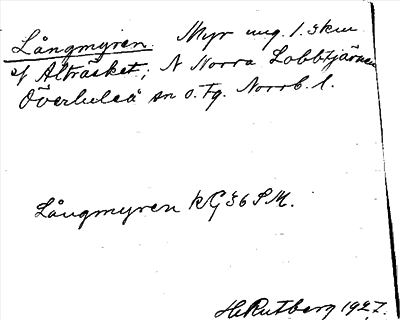 Långmyren. Myr ung. 1.3km
af Alträsket; N Norra Lobbtjärnen
Överluleå sn o. tg. Norrb. l.
Långmyren kG36SM.
H. Rutberg 1927.